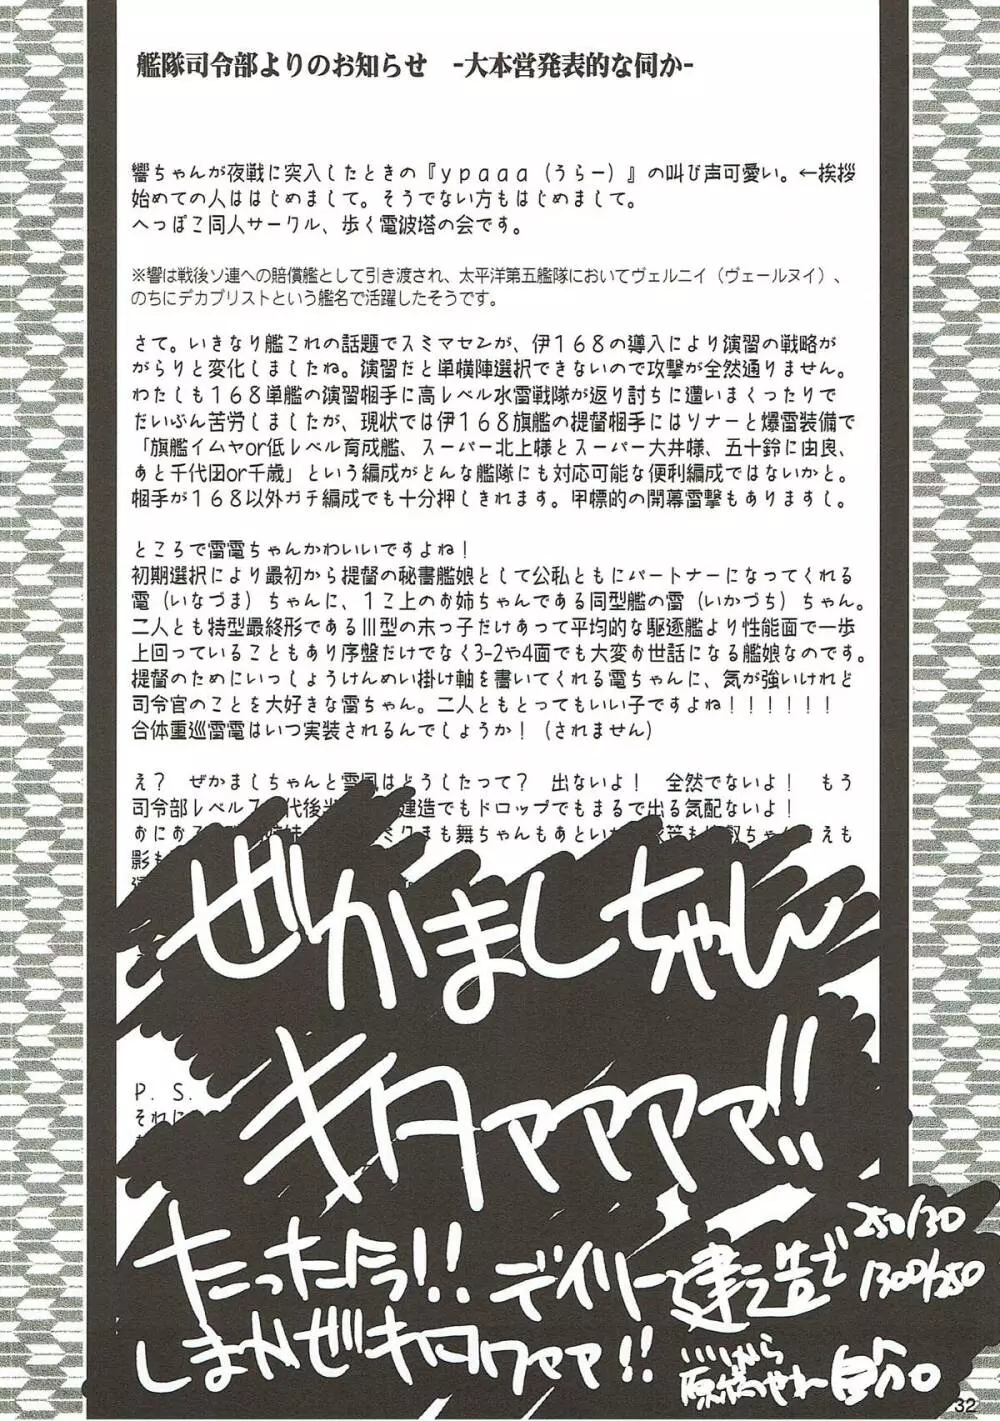 艦隊司令部よりのお知らせ　-大本営発表的な伺か-
響ちゃんが夜戦に突入したときの『ypaaa（うらー）』の叫び声可愛い。←挨拶
始めての人ははじめまして。そうでない方もはじめまして。
へっぽこ同人サークル、歩く電波塔の会です。
※響は戦後ソ連への賠償艦として引き渡され、太平洋第五艦隊においてヴェルニイ（ヴェールヌイ）、
のちにデカブリストという艦名で活躍したそうです。
さて。いきなり艦これの話題でスミマセンが、伊１６８の導入により演習の戦略が
がらりと変化しましたね。演習だと単横陣選択できないので攻撃が全然通りません。
わたしも１６８単艦の演習相手に高レベル水雷戦隊が返り討ちに遭いまくったりで
だいぶん苦労しましたが、現状では伊１６８旗艦の提督相手にはソナーと爆雷装備で
「旗艦イムヤor低レベル育成艦、スーパー北上様とスーパー大井様、五十鈴に由良、
あと千代田or千歳」という編成がどんな艦隊にも対応可能な便利編成ではないかと。
相手が１６８以外ガチ編成でも十分押しきれます。甲標的の開幕雷撃もありますし。
ところで雷電ちゃんかわいいですよね！
初期選択により最初から提督の秘書艦娘として公私ともにパートナーになってくれる
電（いなづま）ちゃんに、１こ上のお姉ちゃんである同型艦の雷（いかづち）ちゃん。
二人とも特型最終形であるⅢ型の末っ子だけあって平均的な駆逐艦より性能面で一歩
上回っていることもあり序盤だけでなく3-2や4面でも大変お世話になる艦娘なのです。
提督のためにいっしょうけんめい掛け軸を書いてくれる電ちゃんに、気が強いけれど
司令官のことを大好きな雷ちゃん。二人ともとってもいい子ですよね！！！！！！
合体重巡雷電はいつ実装されるんでしょうか！（されません）
え？　ぜかましちゃんと雪風はどうしたって？　出ないよ！　全然でないよ！　もう
司令部レベル 代後半 建造でもドロップでもまるで出る気配ないよ！
も舞ちゃんもあと さえも
影も
ぜかましちゃん
キタァァァァ!!
P. S.
それに
たった今!! デイリー建造で
250/30
1300/250
しまかぜキタワァァ!!
原稿やれー自分
32